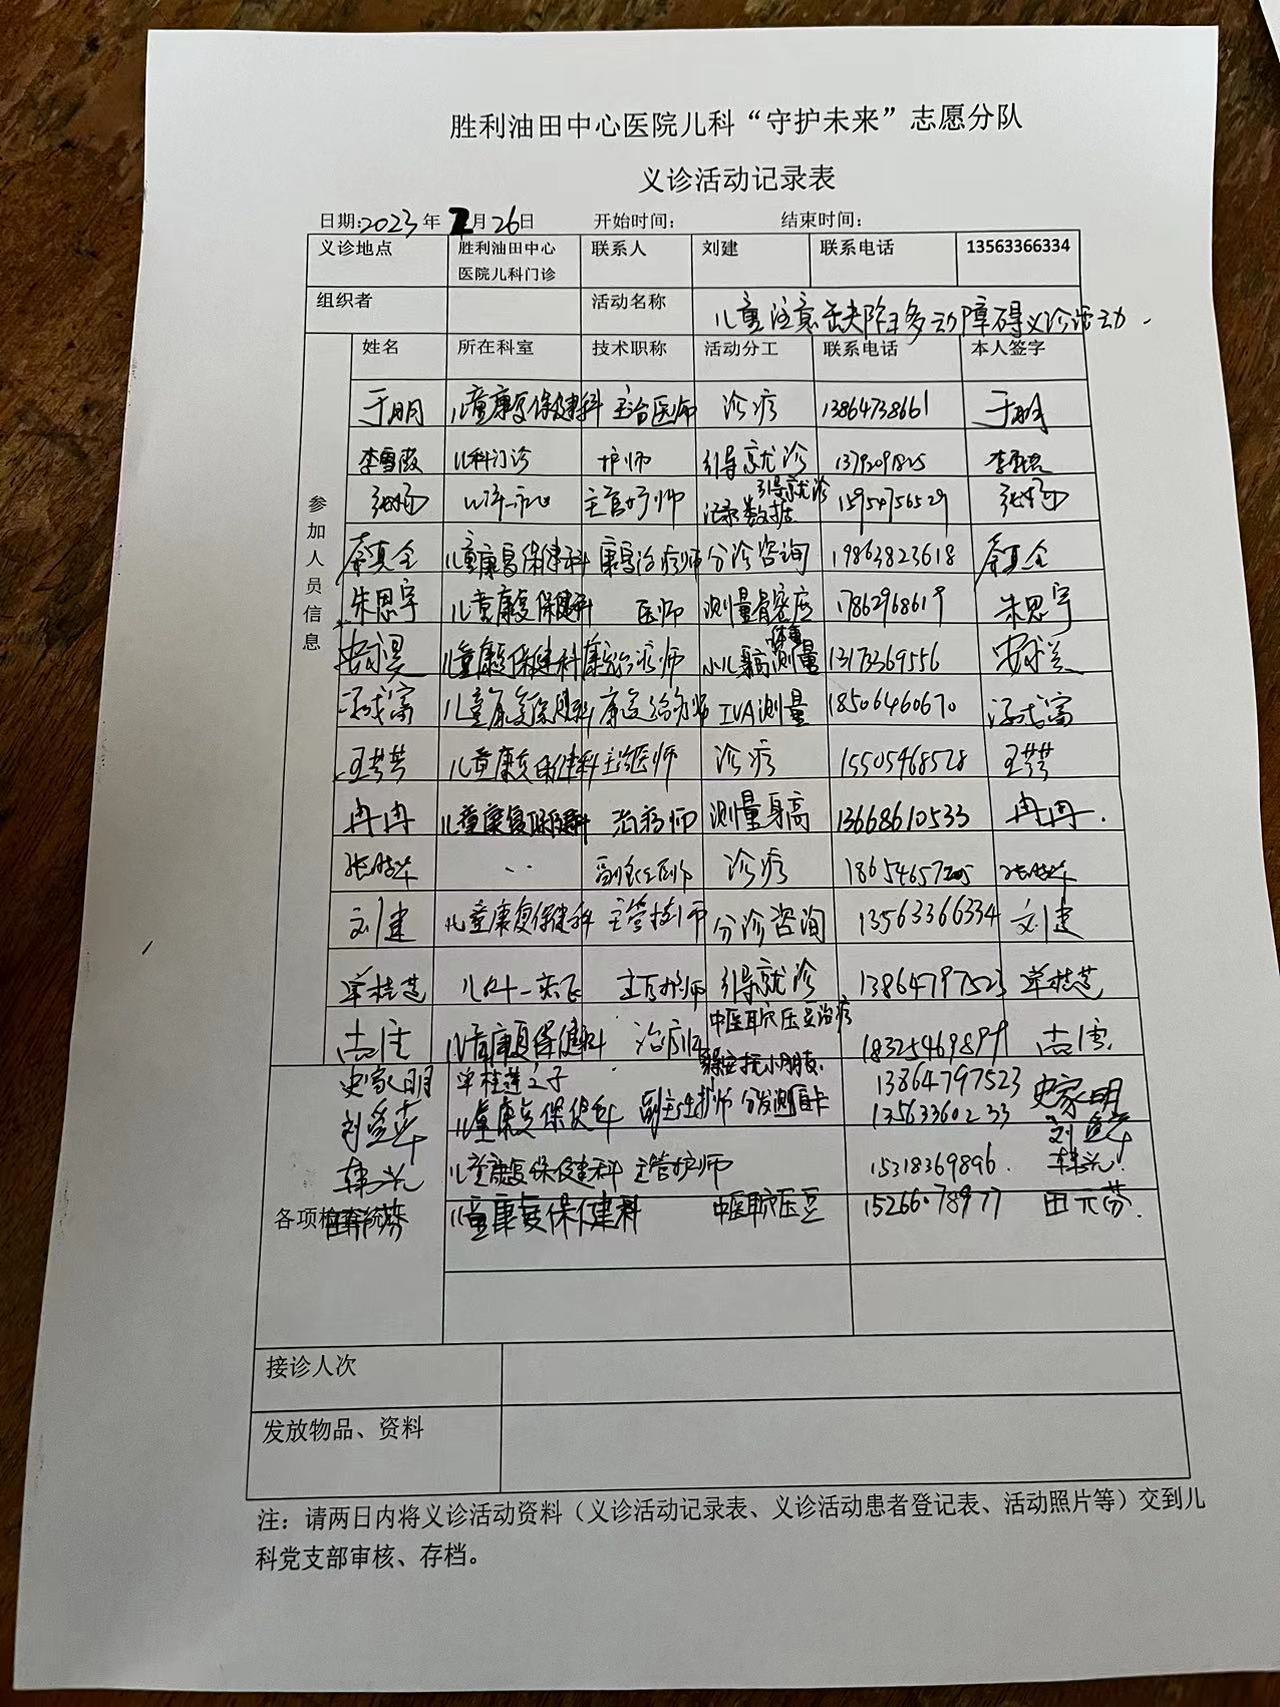 胜利油田中心医院儿科“守护未来”志愿分队
义诊活动记录表
日期:2023年 2月26日 开始时间: 结束时间:
义诊地点 胜利油田中心医院儿科门诊 联系人 刘建 联系电话 13563366334
组织者 活动名称 儿童注意缺陷多动障碍义诊活动.
参加人员信息
姓名 所在科室 技术职称 活动分工 联系电话 本人签字
于明 儿童康复保健科 主治医师 诊疗 13864738661 于明
李雪 儿科门诊 护师 引导就诊 李雪
张杨 主管护师 引导就诊 记录数据 15954756529 张杨
秦真全 儿童康复保健科 康复治疗师 分诊咨询 19863823618 秦真全
朱思宇 儿童康复保健科 医师 测量骨密度 17862968619 朱思宇
儿童康复保健科 康复治疗师 小儿身高体重测量 13173369556
冯成富 儿童康复保健科 康复治疗师 IVA测量 18506460670 冯成富
王芸芸 儿童康复保健科 主治医师 诊疗 15505468528 王芸芸
冉冉 儿童康复保健科 治疗师 测量身高 13668610533 冉冉.
张晓华 .. 诊疗 张晓华
刘建 儿童康复保健科 主管技师 分诊咨询 13563366334 刘建
单桂莲 主管护师 引导就诊 13864797523 单桂莲
儿童康复保健科 治疗师 中医耳穴压豆治疗 18325469899
史家明 单桂莲之子 安抚小朋友. 13864797523 史家明
刘爱华 儿童康复保健科 副主任护师 分发测量卡 13563360233 刘爱华
韩光 儿童康复保健科 主管护师 15318369896. 韩光
各项检查统
田元芬 儿童康复保健科 中医耳穴压豆 15266078977 田元芬.
接诊人次
发放物品、资料
注：请两日内将义诊活动资料（义诊活动记录表、义诊活动患者登记表、活动照片等）交到儿
科党支部审核、存档。